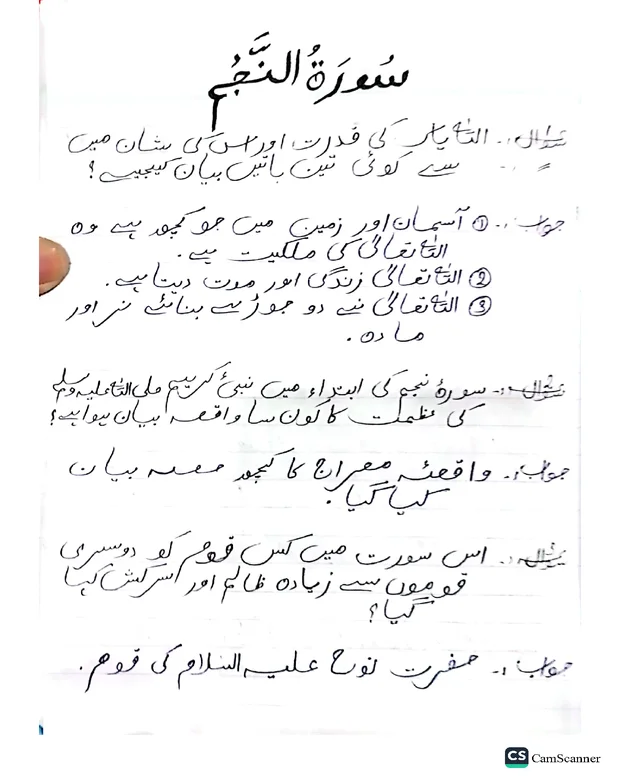 سُورَةُ النَّجْم
سوال:۔ اللہ پاک کی قدرت اور اس کی شان میں
سے کوئی تین باتیں بیان کیجیے؟
جواب:۔ ① آسمان اور زمین میں جو کچھ ہے وہ
اللہ تعالیٰ کی ملکیت ہے۔
② اللہ تعالیٰ زندگی اور موت دیتا ہے۔
③ اللہ تعالیٰ نے دو جوڑے بنائے نر اور
مادہ۔
سوال:۔ سورۂ نجم کی ابتداء میں نبیٔ کریم صلی اللہ علیہ وسلم
کی عظمت کا کون سا واقعہ بیان ہوا ہے؟
جواب:۔ واقعئہ معراج کا کچھ حصہ بیان
کیا گیا۔
سوال:۔ اس سورت میں کس قوم کو دوسری
قوموں سے زیادہ ظالم اور سرکش کہا
گیا؟
جواب:۔ حضرت نوح علیہ السلام کی قوم۔
CS CamScanner